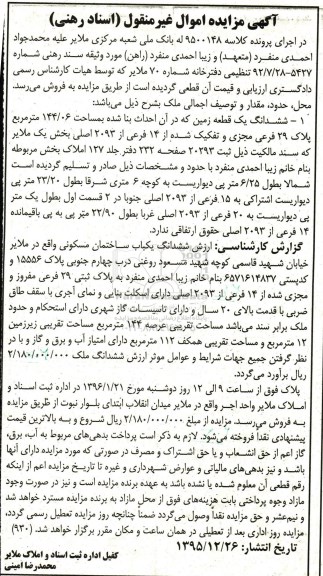 آگهی مزایده اموال غیرمنقول (اسناد رهنی)
در اجرای پرونده کلاسه ۹۵۰۰۱۴۸ له بانک ملی شعبه مرکزی ملایر علیه محمدجواد
احمدی منفرد (متعهد) و زیبا احمدی منفرد (راهن) مورد وثیقه سند رهنی شماره
۵۴۳۷-۹۲/۷/۲۸ تنظیمی دفترخانه شماره ۷۰ ملایر که توسط هیات کارشناس رسمی
دادگستری ارزیابی و قیمت آن قطعی گردیده است از طریق مزایده به فروش می‌رسد.
محل، حدود، مقدار و توصیف اجمالی ملک بشرح ذیل می‌باشد:
۱ – ششدانگ یک قطعه زمین که در آن احداث بنا شده بمساحت ۱۴۴/۰۶ مترمربع
پلاک ۲۹ فرعی مجزی و تفکیک شده از ۱۴ فرعی از ۲۰۹۳ اصلی بخش یک ملایر
که سند مالکیت ذیل ثبت ۲۰۲۹۳ صفحه ۲۳۲ دفتر جلد ۱۲۷ املاک بخش مربوطه
بنام خانم زیبا احمدی منفرد با حدود و مشخصات ذیل صادر و تسلیم گردیده است
شمالا بطول ۶/۲۵ متر پی دیواریست به کوچه ۶ متری شرقا بطول ۲۳/۲۰ متر پی
دیواریست اشتراکی به ۱۵ فرعی از ۲۰۹۳ اصلی جنوبا در ۲ قسمت اول بطول یک متر
پی دیواریست به ۲۰ فرعی از ۲۰۹۳ اصلی غربا بطول ۲۲/۹۰ متر پی به پی باقیمانده
۱۴ فرعی از ۲۰۹۳ اصلی حقوق ارتفاقی ندارد.
گزارش کارشناسی: ارزش ششدانگ یکباب ساختمان مسکونی واقع در ملایر
خیابان شهید قاسمی کوچه شهید مسعود روغنی درب چهارم جنوبی پلاک ۱۵۵۵۶ و
کدپستی ۶۵۷۱۶۱۴۸۳۷ بنام خانم زیبا احمدی منفرد به پلاک ثبتی ۲۹ فرعی مفروز و
مجزی شده از ۱۴ فرعی از ۲۰۹۳ اصلی دارای اسکلت بنایی و نمای آجری با سقف طاق
ضربی با قدمت بالای ۲۰ سال و دارای تاسیسات گاز شهری دارای استحکام و حدود
ملک برابر سند می‌باشد مساحت تقریبی عرصه ۱۴۴ مترمربع مساحت تقریبی زیرزمین
۱۲ مترمربع و مساحت تقریبی همکف ۱۱۲ مترمربع دارای امتیاز آب و برق و گاز و با در
نظر گرفتن جمیع جهات شرایط و عوامل موثر ارزش ششدانگ ملک ۲/۱۸۰/۰۰۰/۰۰۰
ریال برآورد می‌گردد.
پلاک فوق از ساعت ۹ الی ۱۲ روز دوشنبه مورخ ۱۳۹۶/۱/۲۱ در اداره ثبت اسناد و
املاک ملایر واحد اجر واقع در ملایر میدان انقلاب ابتدای بلوار نبوت از طریق مزایده
به فروش می‌رسد. مزایده از مبلغ ۲/۱۸۰/۰۰۰/۰۰۰ ریال شروع و به بالاترین قیمت
پیشنهادی نقداً فروخته می‌شود. لازم به ذکر است پرداخت بدهی‌های مربوط به آب، برق،
گاز اعم از حق انشعاب و یا حق اشتراک و مصرف در صورتی که مورد مزایده دارای آنها
باشد و نیز بدهی‌های مالیاتی و عوارض شهرداری و غیره تا تاریخ مزایده اعم از اینکه
رقم قطعی آن معلوم شده یا نشده باشد به عهده برنده مزایده است و نیز در صورت وجود
مازاد وجوه پرداختی بابت هزینه‌های فوق از محل مازاد به برنده مزایده مسترد خواهد شد
و نیم‌عشر و حق مزایده نقداً وصول می‌گردد ضمناً چنانچه روز مزایده تعطیل رسمی گردد،
مزایده روز اداری بعد از تعطیلی در همان ساعت و مکان مقرر برگزار خواهد شد. (۹۳۰)
تاریخ انتشار: ۱۳۹۵/۱۲/۲۶
کفیل اداره ثبت اسناد و املاک ملایر
محمدرضا امینی